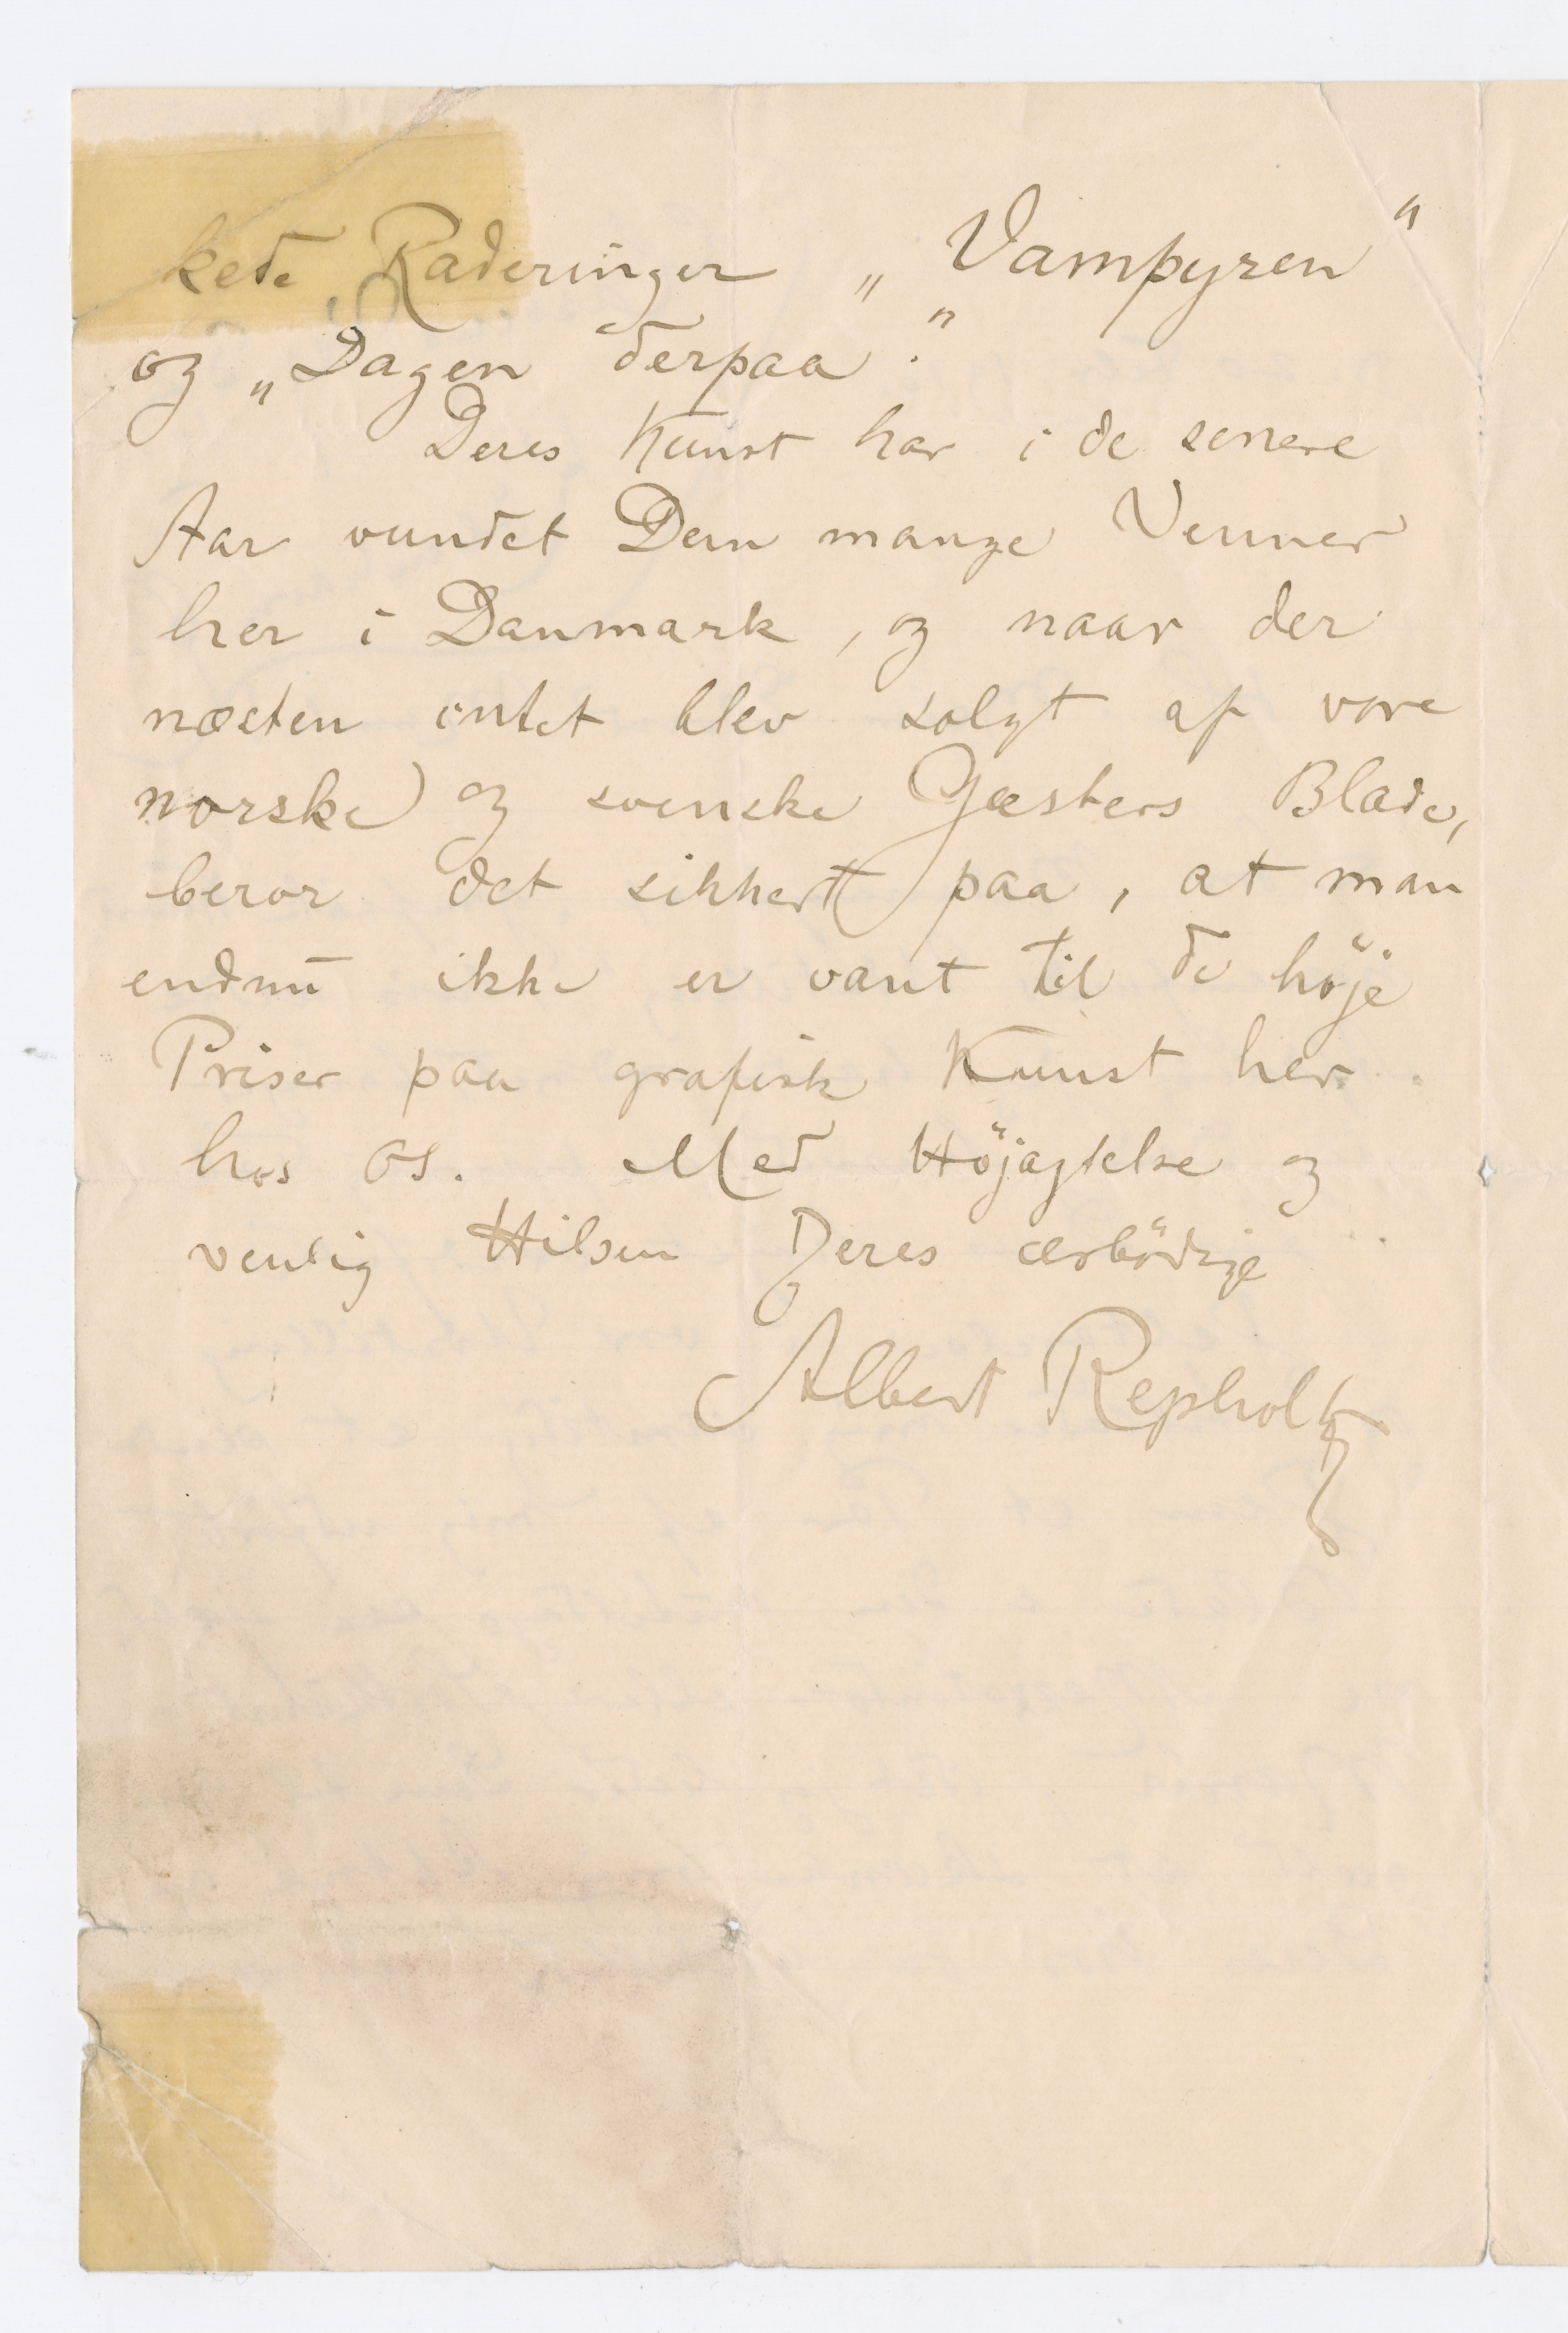 kede Raderinger „Vampyren"
og „Dagen derpaa".
Deres Kunst har i de senere
Aar vundet Dem mange Venner
her i Danmark, og naar der
næsten intet blev solgt af vore
norske og svenske Gæsters Blade,
beror det sikkert paa, at man
endnu ikke er vant til de höje
Priser paa grafisk Kunst her
hos os. Med Höjagtelse og
venlig Hilsen Deres ærbödige
Albert Repholtz